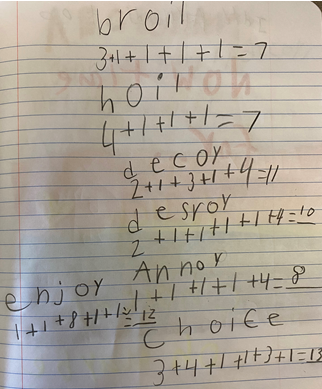 broil
3+1+1+1+1=7
hoil
4+1+1+1=7
decoy
2+1+3+1+4=11
desroy
2+1+1+1+1+4=10
Annoy
1+1+1+1+4=8
enjoy
1+1+8+1+1=12
Choice
3+4+1+1+3+1=13